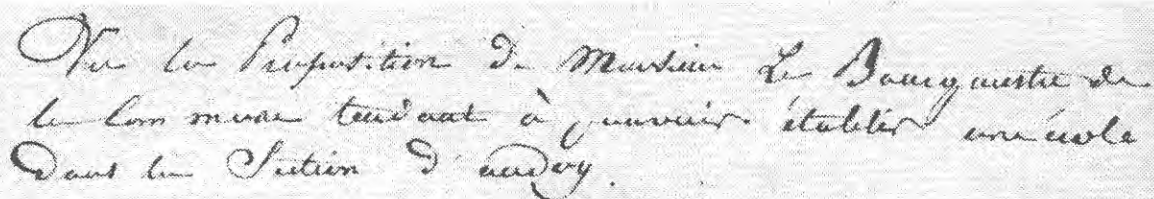 Vu la Proposition de Monsieur Le Bourgmestre de
la Commune tendant à pouvoir établir une école
dans la Section d'andoy.